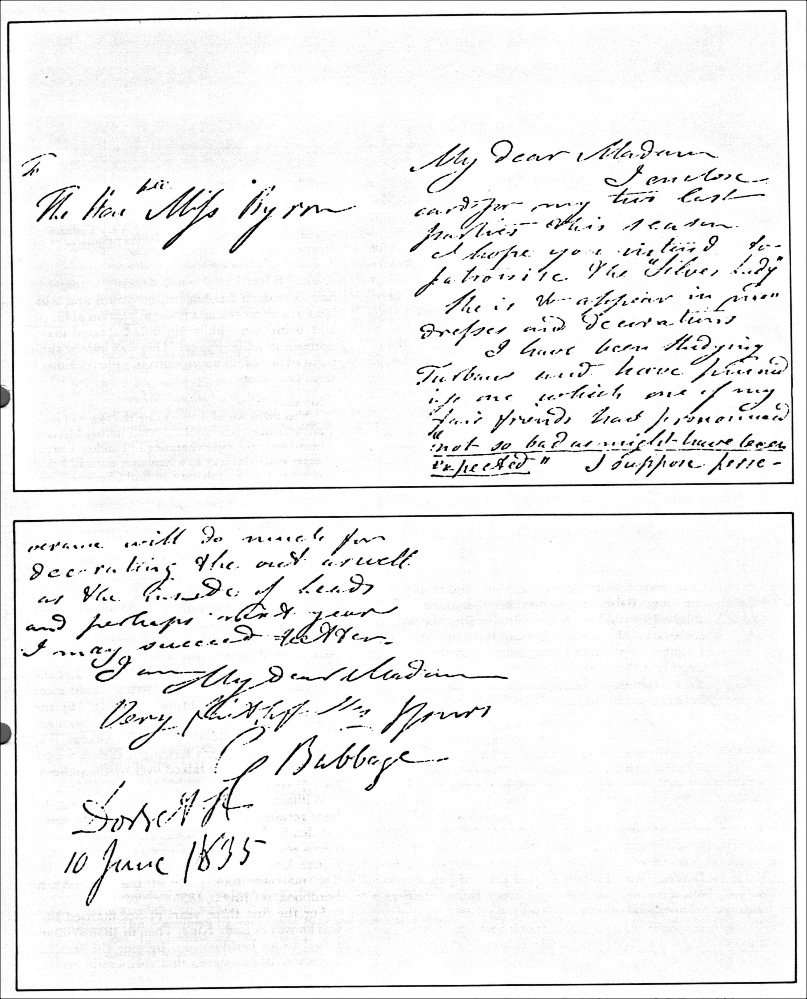 To
The Honble Miss Byron
My dear Madam
I enclose
cards for my two last
parties this season
I hope you intend to
patronise the "Silver Lady"
She is to appear in new
dresses and decorations
I have been studying
Turbans and have pinned
up one which one of my
fair friends has pronounced
"not so bad as might have been
expected" I suppose perse-
verance will do much for
decorating the out as well
as the inside of heads
and perhaps next year
I may succeed better.
I am My Dear Madam
Very faithfully Yours
C Babbage
Dorset St
10 June 1835